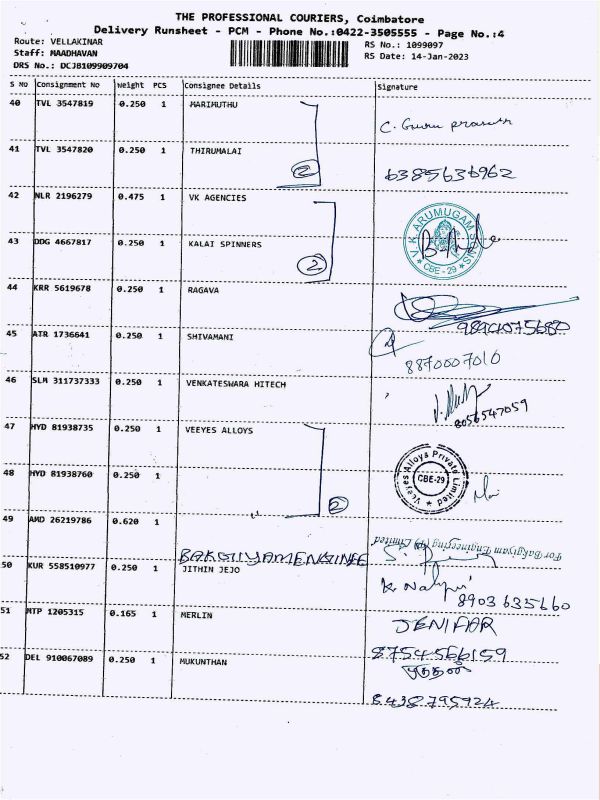 THE PROFESSIONAL COURIERS, Coimbatore
Delivery Runsheet - PCM - Phone No.:0422-3505555 - Page No.:4
Route: VELLAKINAR RS No.: 1099097
Staff: MAADHAVAN RS Date: 14-Jan-2023
DRS No.: DCJB109909704
S No Consignment No Weight PCS Consignee Details Signature
40 TVL 3547819 0.250 1 MARIMUTHU
C. Guru prasath
41 TVL 3547820 0.250 1 THIRUMALAI
2 6385636962
42 NLR 2196279 0.475 1 VK AGENCIES
V. K. ARUMUGAM SONS CBE - 29
43 DDG 4667817 0.250 1 KALAI SPINNERS
2
44 KRR 5619678 0.250 1 RAGAVA
45 ATR 1736641 0.250 1 SHIVAMANI
8870007010
46 SLM 311737333 0.250 1 VENKATESWARA HITECH
8056547059
47 HYD 81938735 0.250 1 VEEYES ALLOYS
Veeyes Alloys Private Limited CBE-29
48 HYD 81938760 0.250 1
2
49 AMD 26219786 0.620 1
For Bakgiyam Engineering (P) Limited
50 KUR 558510977 0.250 1 JITHIN JEJO
8903635660
51 MTP 1205315 0.165 1 MERLIN
JENIFAR
8754566159
52 DEL 910067089 0.250 1 MUKUNTHAN